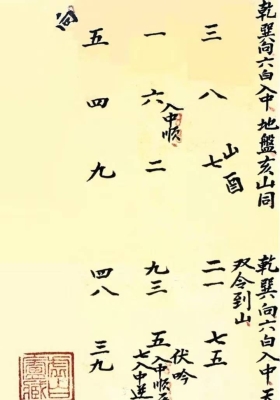 乾巽向六白入中 地盤亥山同
三 八 七
山酉
一 六 二
入中順
向
五 四 九
乾巽向六白入中
双令到山
二一 七五
伏吟
九三 五
入中順
七入中逆
四八 三九